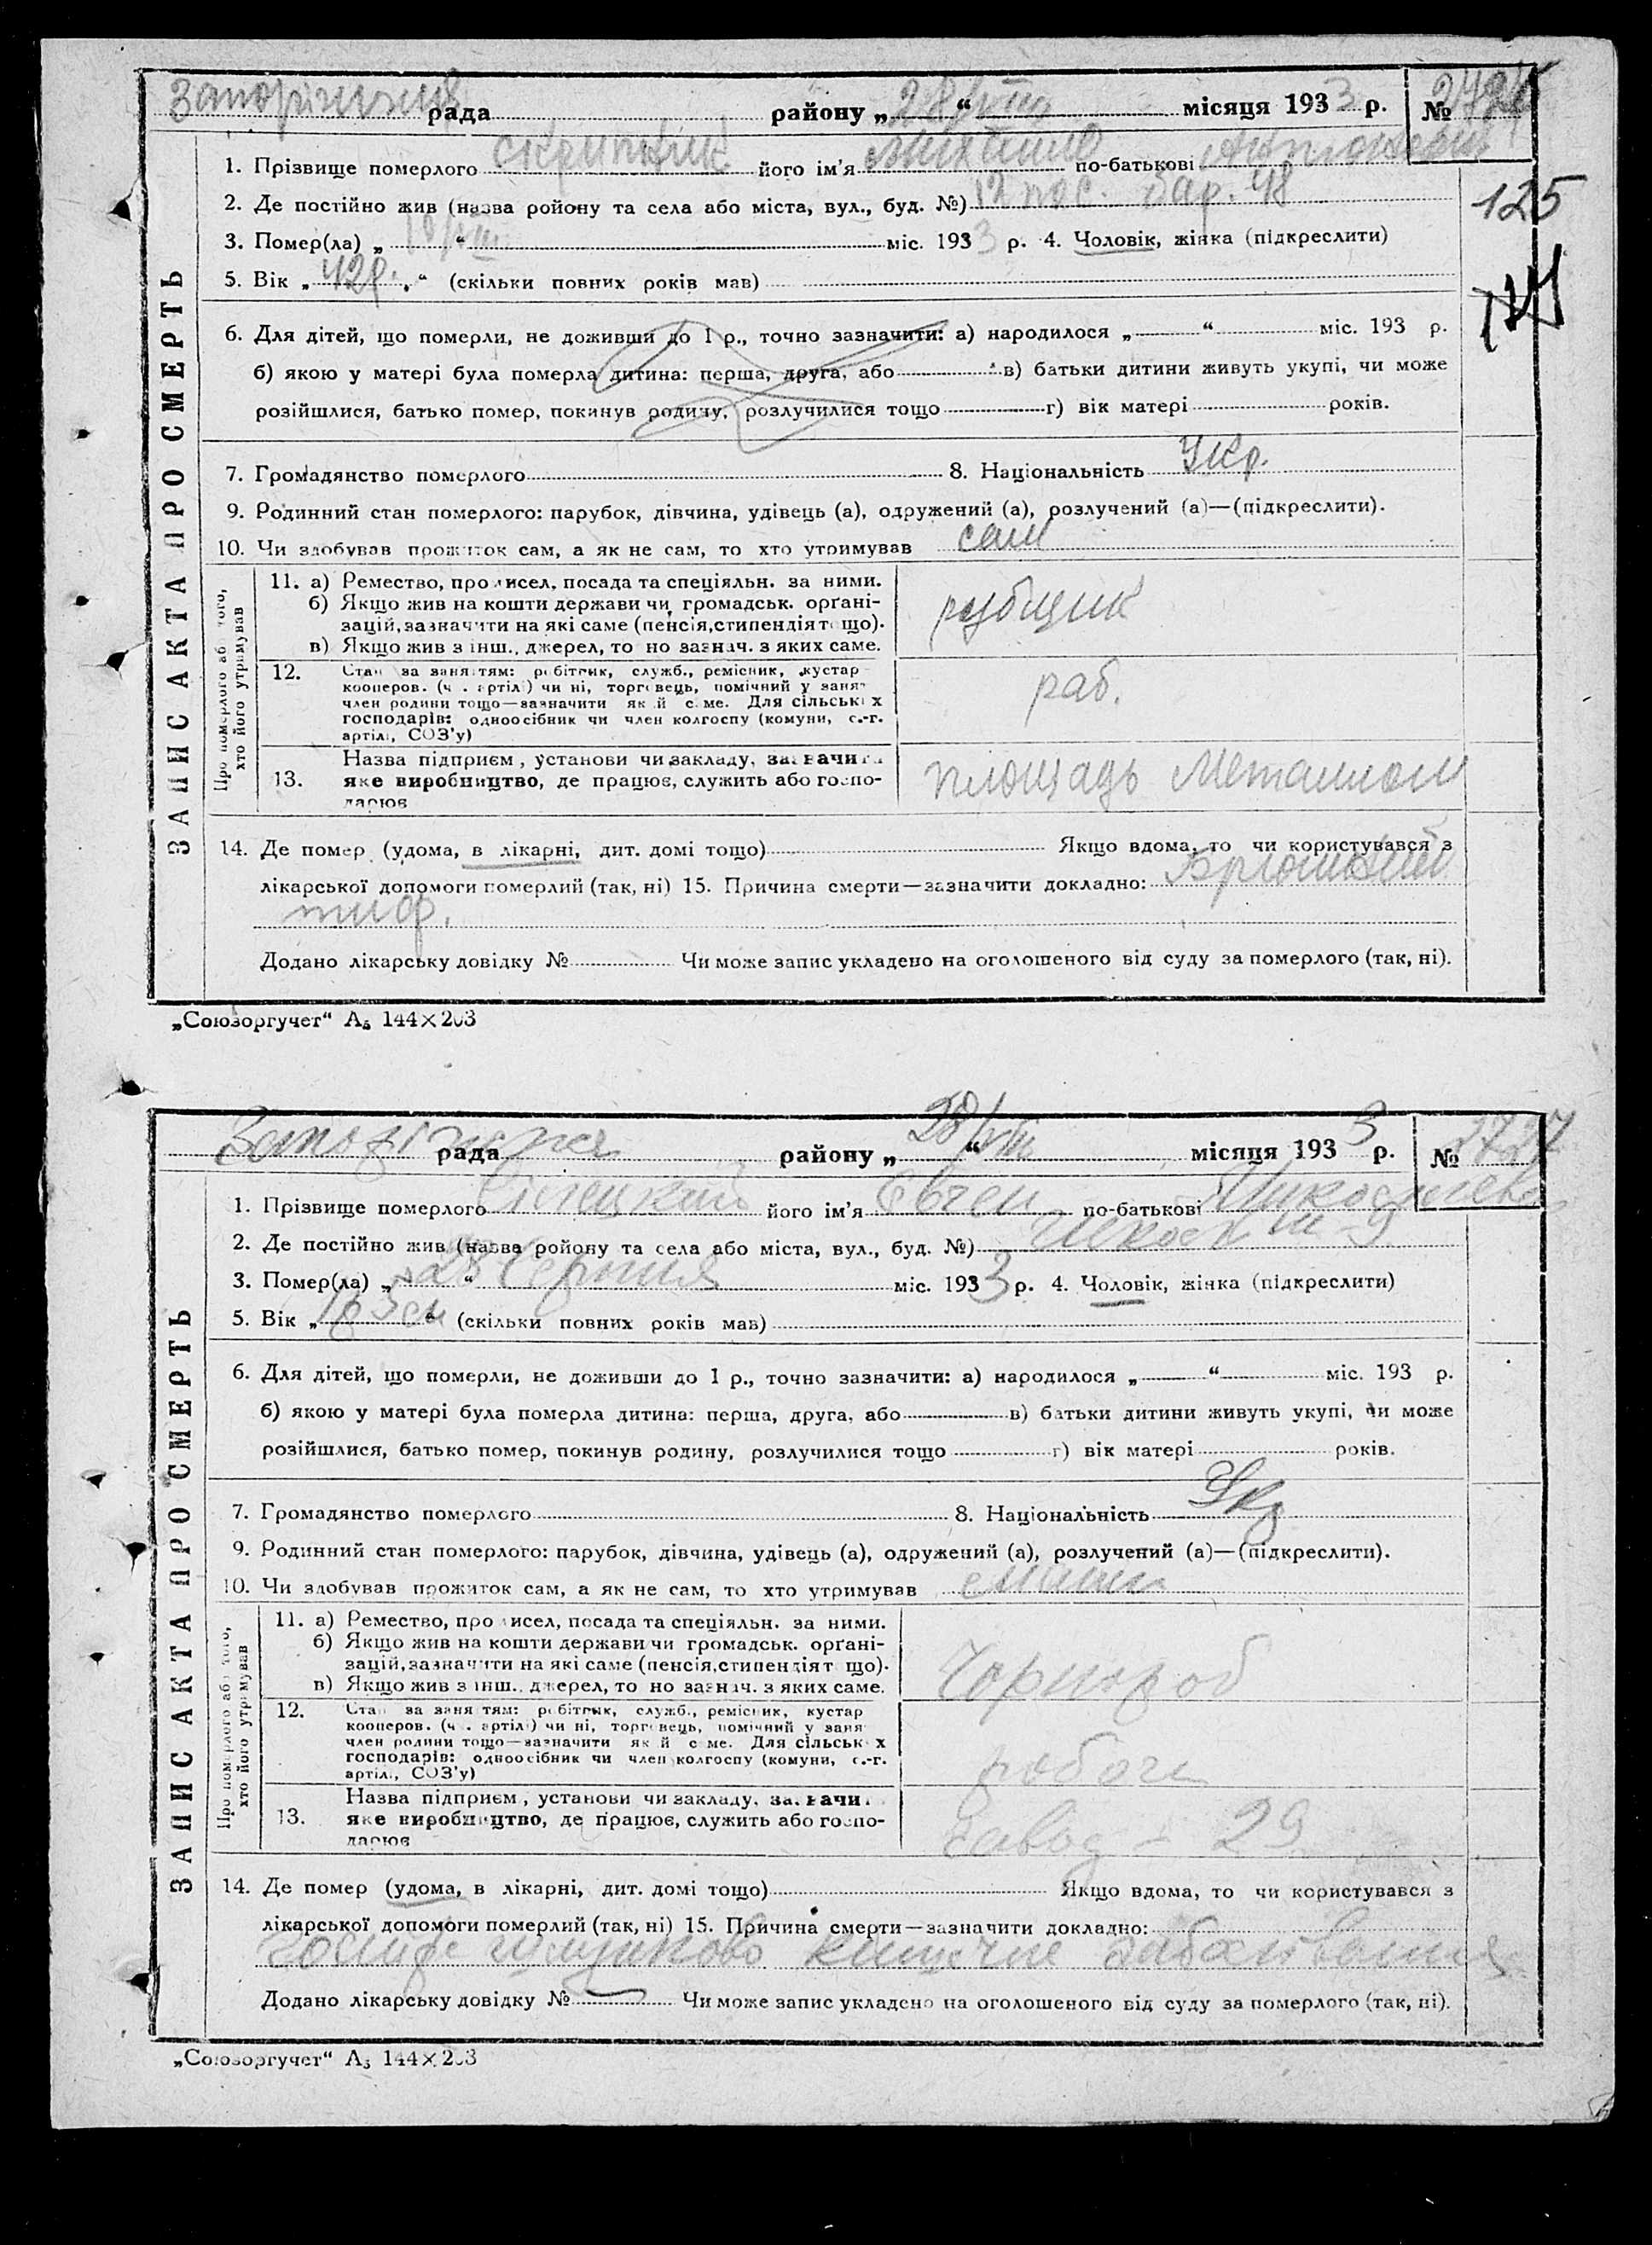 рада району „28/VIII“ місяця 1933 р. №
1. Прізвище померлого Скрипник його ім'я Михайло по-батькові Антонович
125
2. Де постійно жив (назва ройону та села або міста, вул., буд. №) 12 пос. бар. 48
3. Помер(ла) „10/VIII“ міс. 1933 р. 4. Чоловік, жінка (підкреслити)
5. Вік „42р.“ (скільки повних років мав)
6. Для дітей, що померли, не доживши до 1 р., точно зазначити: а) народилося „ “ міс. 193 р.
б) якою у матері була померла дитина: перша, друга, або в) батьки дитини живуть укупі, чи може
розійшлися, батько помер, покинув родину, розлучилися тощо г) вік матері років.
7. Громадянство померлого 8. Національність Укр.
9. Родинний стан померлого: парубок, дівчина, удівець (а), одружений (а), розлучений (а)—(підкреслити).
10. Чи здобував прожиток сам, а як не сам, то хто утримував сам
ЗАПИС АКТА ПРО СМЕРТЬ
Про померлого або того, хто його утримував
11. а) Ремество, промисел, посада та спеціяльн. за ними.
б) Якщо жив на кошти держави чи громадськ. орґані-
зацій, зазначити на які саме (пенсія, стипендія тощо).
в) Якщо жив з інш. джерел, то но зазнач. з яких саме.
рубщик
12. Стан за заняттям: робітник, служб., ремісник, кустар
кооперов. (ч. артілі) чи ні, торговець, помічний у заня
член родини тощо—зазначити який саме. Для сільських
господарів: одноосібник чи член колгоспу (комуни, с.-г.
артілі, СОЗ'у)
раб.
13. Назва підприєм, установи чи закладу, зазначити
яке виробництво, де працює, служить або госпо-
дарює
площадь Металлом
14. Де помер (удома, в лікарні, дит. домі тощо) Якщо вдома, то чи користувався з
лікарської допомоги померлий (так, ні) 15. Причина смерти—зазначити докладно: Брюшний
тиф.
Додано лікарську довідку № Чи може запис укладено на оголошеного від суду за померлого (так, ні).
„Союзоргучет“ А5 144×203
рада району „28/VIII“ місяця 1933 р. № 2727
1. Прізвище померлого його ім'я Євген по-батькові
2. Де постійно жив (назва ройону та села або міста, вул., буд. №)
3. Помер(ла) „28“ Серпня міс. 1933 р. 4. Чоловік, жінка (підкреслити)
5. Вік „ “ (скільки повних років мав)
6. Для дітей, що померли, не доживши до 1 р., точно зазначити: а) народилося „ “ міс. 193 р.
б) якою у матері була померла дитина: перша, друга, або в) батьки дитини живуть укупі, чи може
розійшлися, батько помер, покинув родину, розлучилися тощо г) вік матері років.
7. Громадянство померлого 8. Національність Укр
9. Родинний стан померлого: парубок, дівчина, удівець (а), одружений (а), розлучений (а)—(підкреслити).
10. Чи здобував прожиток сам, а як не сам, то хто утримував
ЗАПИС АКТА ПРО СМЕРТЬ
Про померлого або того, хто його утримував
11. а) Ремество, промисел, посада та спеціяльн. за ними.
б) Якщо жив на кошти держави чи громадськ. орґані-
зацій, зазначити на які саме (пенсія, стипендія т що).
в) Якщо жив з інш. джерел, то но зазнач. з яких саме.
Чорнороб
12. Стан за заняттям: робітник, служб., ремісник, кустар
кооперов. (ч. артілі) чи ні, торговець, помічний у заня
член родини тощо—зазначити який саме. Для сільських
господарів: одноосібник чи член колгоспу (комуни, с.-г.
артілі, СОЗ'у)
робочи
13. Назва підприєм, установи чи закладу, зазначити
яке виробництво, де працює, служить або госпо-
дарює
завод - 29
14. Де помер (удома, в лікарні, дит. домі тощо) Якщо вдома, то чи користувався з
лікарської допомоги померлий (так, ні) 15. Причина смерти—зазначити докладно:
шлунково кишечне
Додано лікарську довідку № Чи може запис укладено на оголошеного від суду за померлого (так, ні).
„Союзоргучет“ А5 144×203